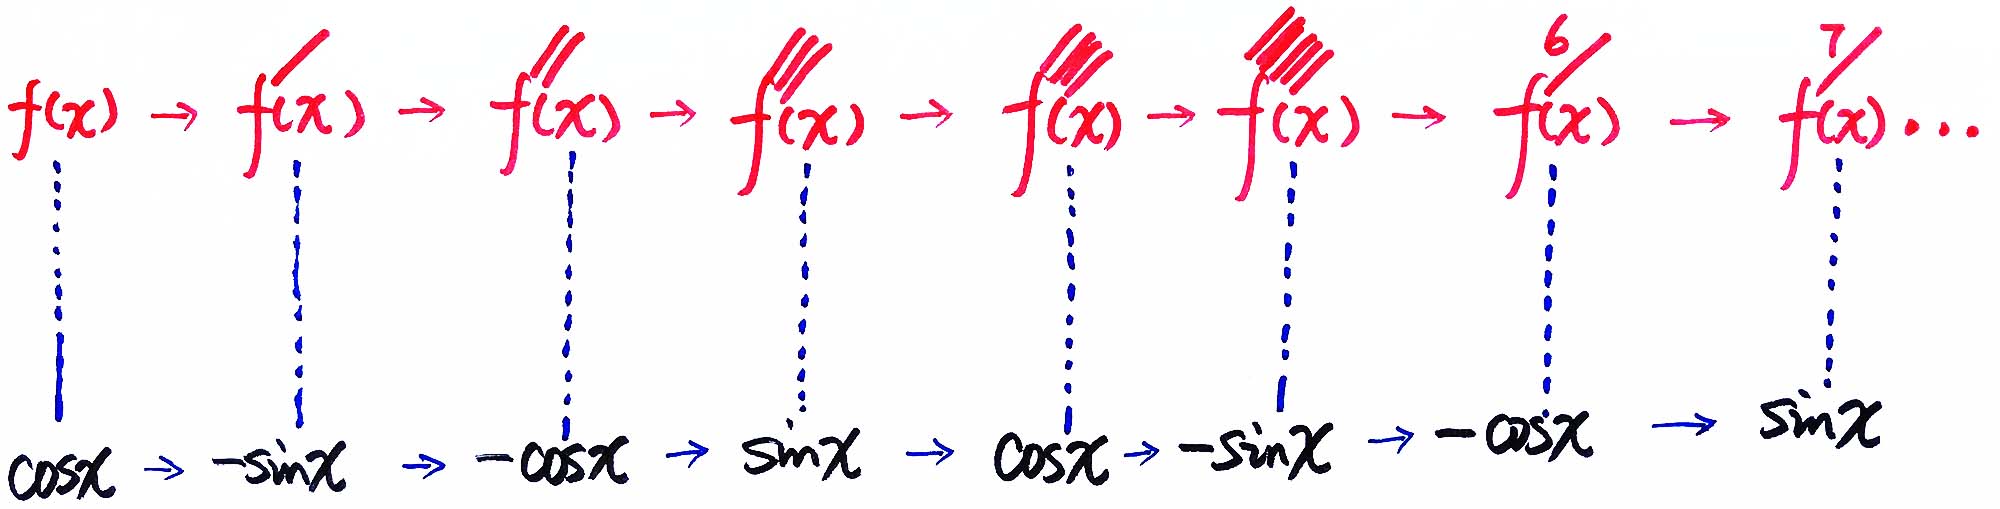 f(x) → f′(x) → f′′(x) → f′′′(x) → f′′′′(x) → f′′′′′(x) → f⁶′(x) → f⁷′(x) ...
cosx → -sinx → -cosx → sinx → cosx → -sinx → -cosx → sinx